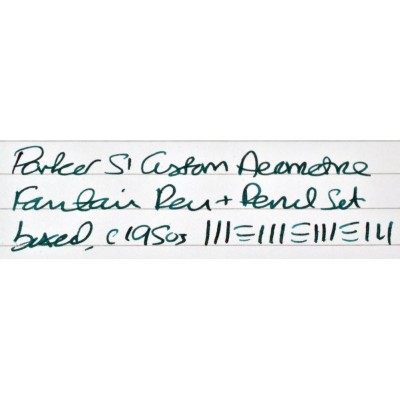 Parker 51 Custom Aerometric
Fountain Pen + Pencil Set
boxed, c1950s